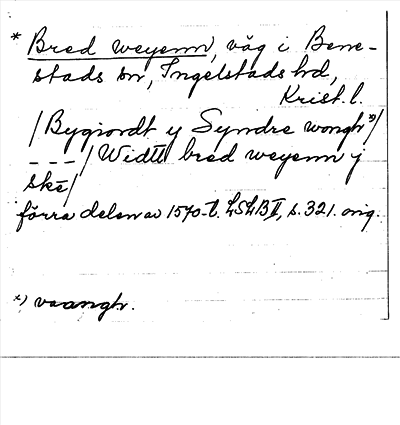 * Bred weyenn, väg i Bene-
stads sn, Ingelstads hd,
Krist. l.
/Bygiordt y Syndre wongh *)/
_ _ _ / Widtt bred weyenn y
skē/
förra delen av 1570-t. LSLB II, s. 321. orig.
*) vaangh.